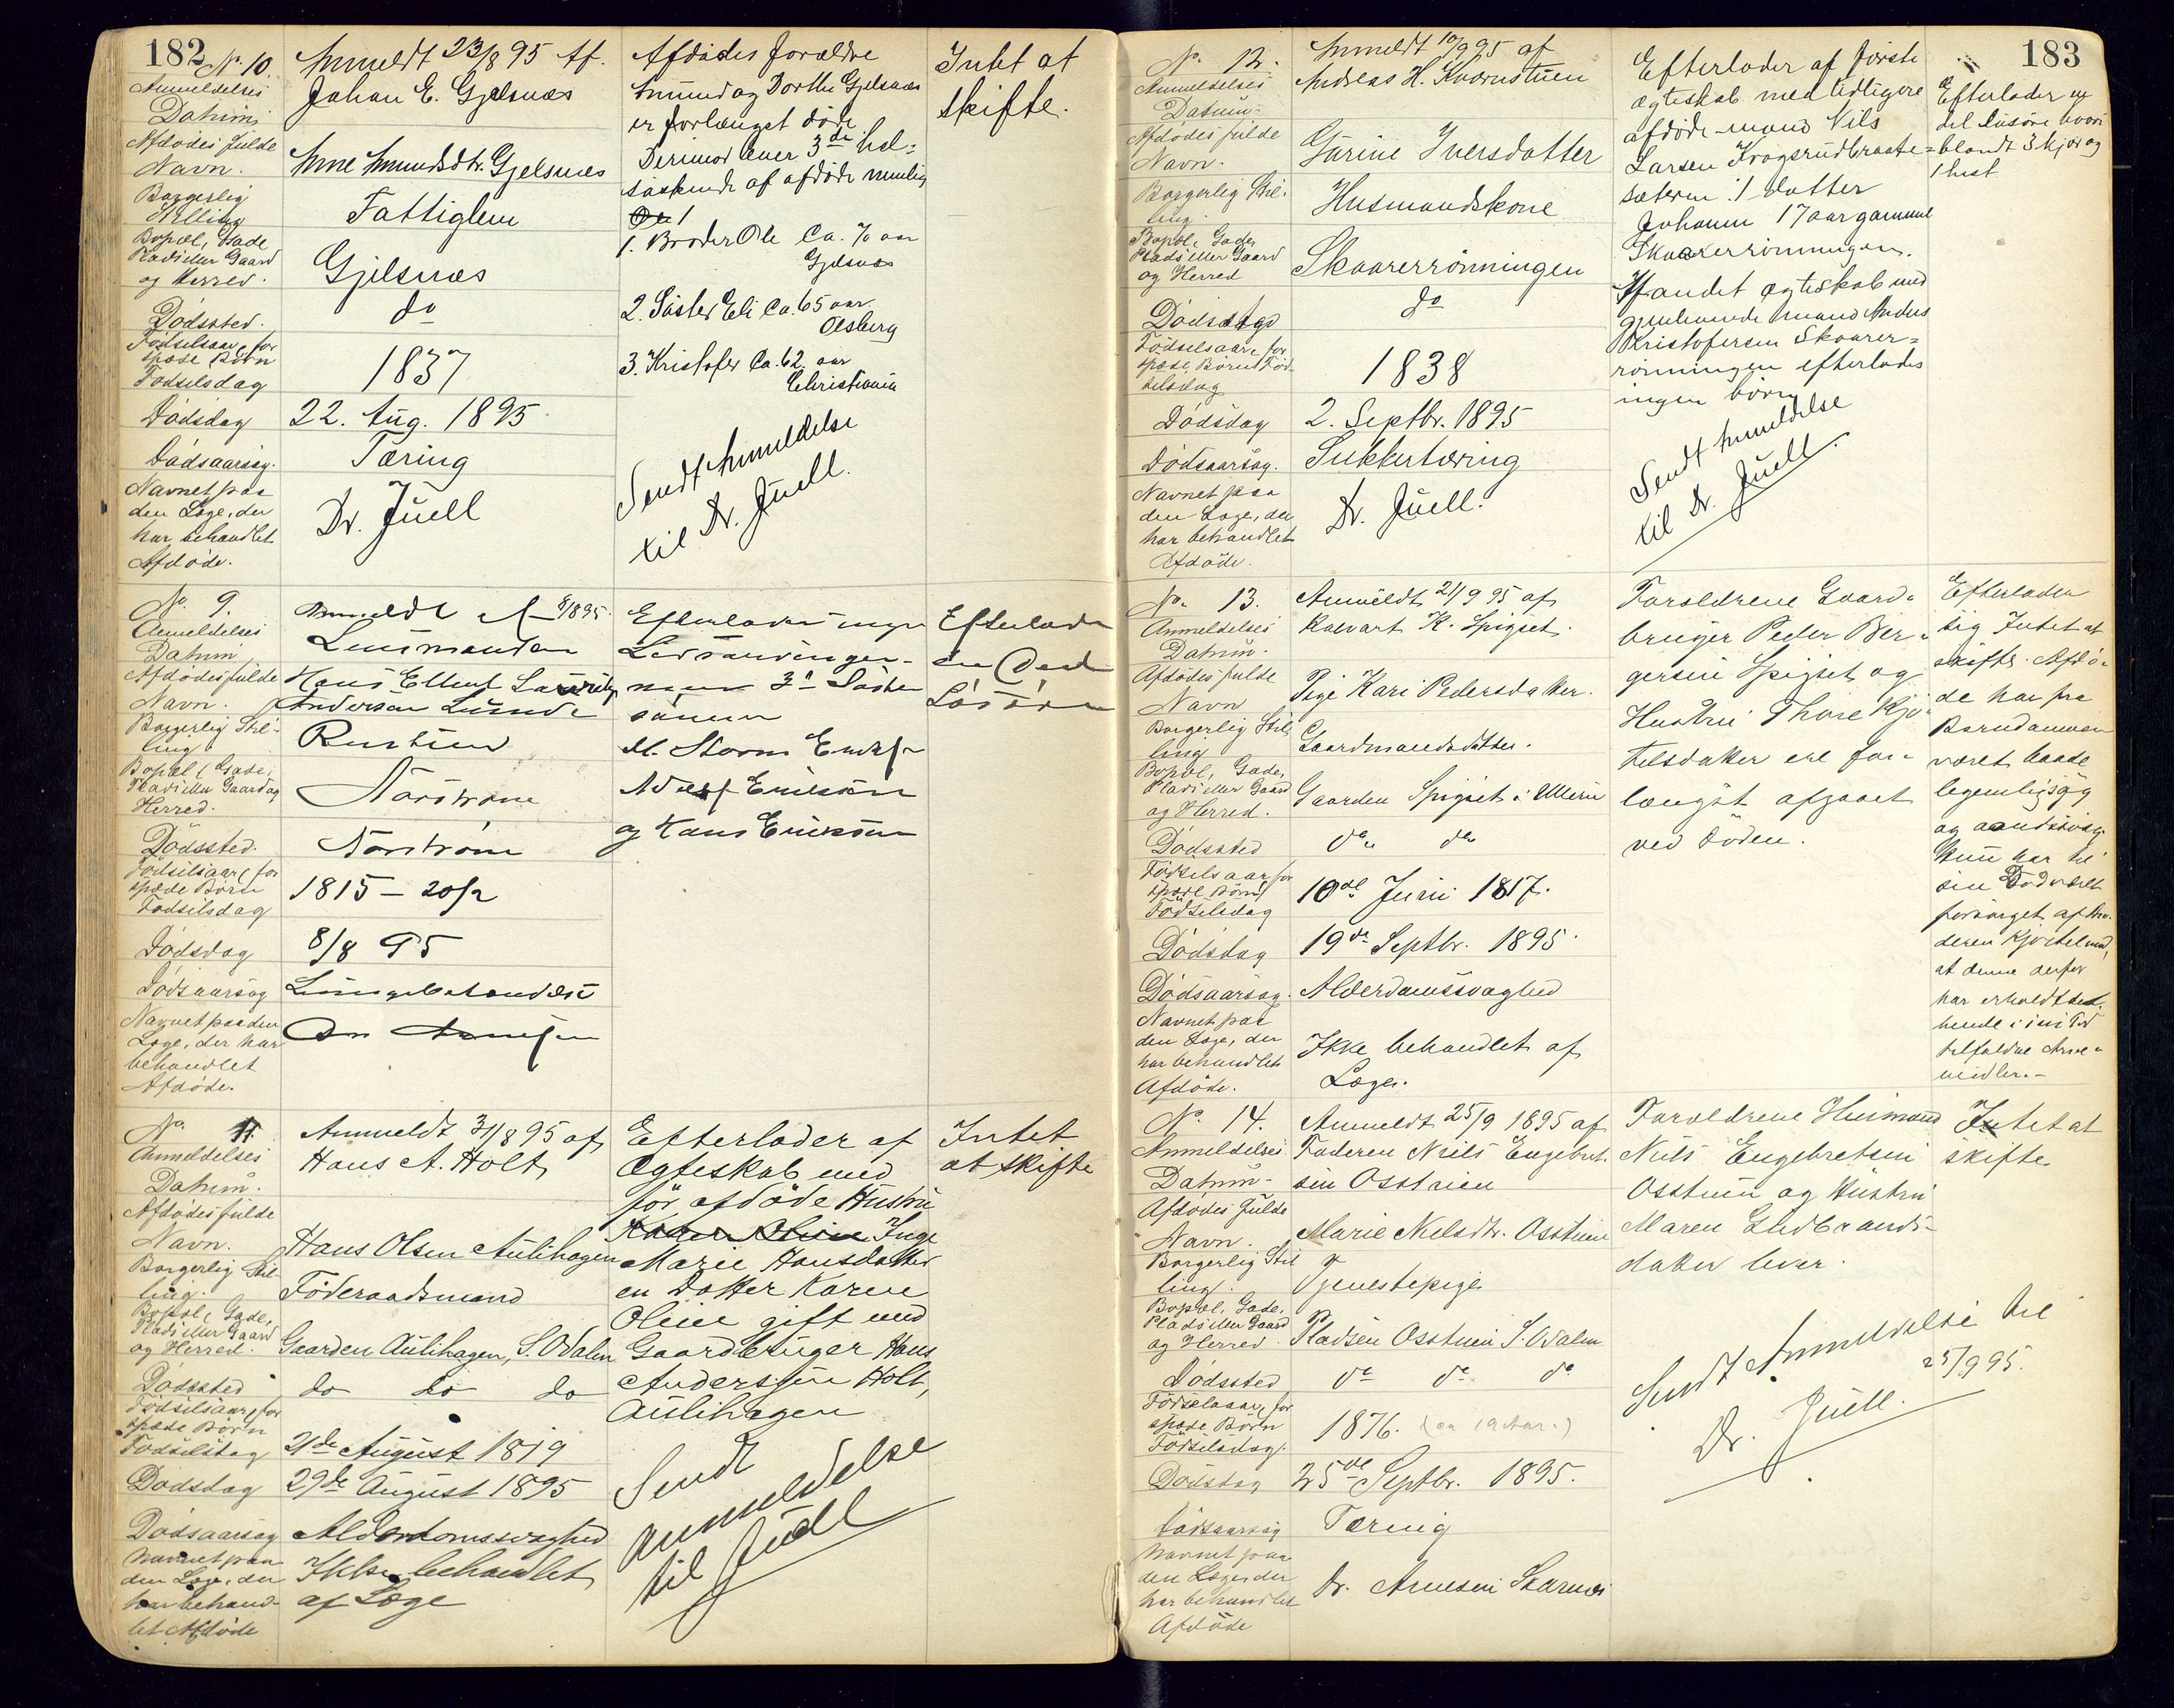 182
No. 10.
Anmeldelses
Datum
Afdödes fulde
Navn.
Borgerlig
Stilling
Bopæl, Gade
Plads eller Gaard
og Herred.
Dödssted.
Födselsaar, for
spæde Börn
Födselsdag
Dödsdag
Dödsaarsag.
Navnet paa
den Læge, der
har behandlet
Afdöde.
Anmeldt 23/8 95 Af.
Johan E. Gjelsnæs
Anne Amundsdtr. Gjelsnæs
Fattiglem
Gjelsnæs
do
1837
22. Aug. 1895
Tæring
Dr. Juell
Afdödes forældre
Amund og Dorthe Gjelsnæs
er forlænget döde
Derimod lever 3de hel=
söskende af afdöde nemlig
1. Broder Ole Ca. 70 aar
Gjelsnæs
2. Söster Eli Ca. 65 aar.
Olsberg
3. Kristofer Ca. 62. aar
Christiania
Sendt Anmeldelse
til Dr. Juell.
Intet at
skifte.
No. 9.
Anmeldelses
Datum
Afdödes fulde
Navn.
Borgerlig Stil-
ling
Bopæl, Gade,
Plads eller Gaard og
Herred.
Dödssted.
Födselsaar, for
spæde Börn
Födselsdag
Dödsdag
Dödsaarsag
Navnet paa den
Læge, der har
behandlet
Afdöde.
Anmeldt af 8/8 95.
Lensmanden
Hans Ellert Lauritz
Andersen Lunde
Norström
Norström
1815 - 20/2
8/8 95
Lungebetændelse
Dr Arnesen
Efterlader ingen
Livsarvinger.
3 Söster
sönner
M. Storm Eriks
Adolf Eriksen
og Hans Eriksen
Efterlader
en Deel
Lösöre
No. 11.
Anmeldelses
Datum.
Afdödes fulde
Navn.
Borgerlig Stil-
ling.
Bopæl, Gade,
Plads eller Gaard
og Herred.
Dödssted
Födselsaar, for
spæde Börn
Födselsdag
Dödsdag
Dödsaarsag
Navnet paa
den Læge, der
har behand-
let Afdöde
Anmeldt 31/8 95 af
Hans A. Holt
Hans Olsen Aulihagen
Föderaadsmand
Gaarden Aulihagen, S. Odalen
do do do
21de August 1819
29de August 1895
Alderdomssvaghed
Ikke behandlet
af Læge
Efterlader af
Ægteskab med
för afdöde Hustru
Inge
Marie Hansdatter
en Datter Karen
Oline gift med
Gaardbruger Hans
Anderssen Holt,
Aulihagen
Sendt
anmeldelse
til Juell
Intet
at skifte
183
No. 12.
Anmeldelses
Datum.
Afdödes fulde
Navn.
Borgerlig Stil-
ling.
Bopæl, Gade,
Plads eller Gaard
og Herred
Dödssted
Födselsaar, for
spæde Börn Föd-
selsdag
Dödsdag
Dödsaarsag.
Navnet paa
den Læge, der
har behandlet
Afdöde.
Anmeldt 10/9 95 af
Andreas H. Kvernstuen
Gurine Iversdatter
Husmandskone
Skaarerrönningen
do
1838
2. Septbr. 1895
Sukkertæring
Dr. Juell.
Efterlader af förste
ægteskab med tidligere
afdöde mand Nils
Larsen Krogsrudbraate=
sæteren: 1 datter
Johanne 17 aar gammel
Skaarerrönningen.
Af andet ægteskab med
gjenlevende mand Anders
Kristofersen Skaarer=
rönningen efterlades
ingen börn
Sendt Anmeldelse
til Dr. Juell.
Efterlader en
del lösöre hvori
blandt 3 kjör og
1 hest
No. 13.
Anmeldelses
Datum.
Afdödes fulde
Navn
Borgerlig Stil
ling
Bopæl, Gade,
Plads eller Gaard
og Herred.
Dödssted
Födselsaar for
spæde Börn
Födselsdag
Dödsdag
Dödsaarsag.
Navnet paa
den Læge, der
har behandlet
Afdöde.
Anmeldt 21/9 95 af
Halvart K. Spigset.
Pige Kari Pedersdatter.
Gaardmandsdatter.
Gaarden Spigset i Ullern
do do
10de Juni 1817.
19de Septbr. 1895.
Alderdomssvaghed
Ikke behandlet af
Læge.
Forældrene Gaard-
bruger Peder Ber-
gersen Spigset og
Hustru Thore Kjö-
telsdatter ere for-
længst afgaaet
ved Döden.
Efterlader
sig Intet at
skifte. Afdö-
de har fra
Barndommen
været baade
legemligsvag
og aandssvag.
Hun har til
sin Död været
forsörget af Bro-
deren
at denne derfor
har erholdt det
hende i sin Tid
tilfaldne Arve-
midler.-
No. 14.
Anmeldelses
Datum-
Afdödes fulde
Navn.
Borgerlig Stil
ling.
Bopæl, Gade,
Plads eller Gaard
og Herred
Dödssted
Födselsaar, for
spæde Börn
Födselsdag.
Dödsdag
Dödsaarsag
Navnet paa
den Læge, der
har behandlet
Afdöde
Anmeldt 25/9 1895 af
Faderen Niels Engebret-
sen Osstuen
Marie Nielsdtr. Osstuen
Tjenestepige
Pladsen Osstuen S. Odalen
do do do
1876. (ca 19 Aar.)
25de Septbr. 1895.
Tæring
Dr. Arnesen Skarnæs
Forældrene Husmand
Niels Engebretsen
Osstuen og Hustru
Maren Gudbrands-
datter lever.
Sendt Anmeldelse til
25/9 95.
Dr. Juell.
Intet at
skifte